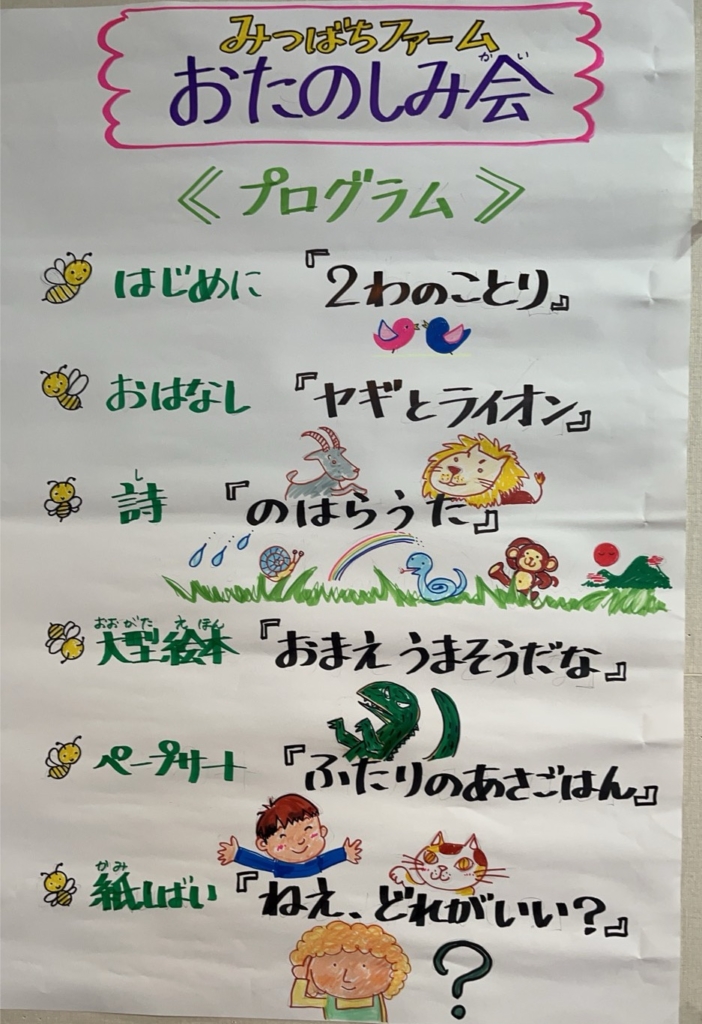 みつばちファーム
おたのしみ会
かい
《プログラム》
はじめに 『2わのことり』
おはなし 『ヤギとライオン』
し
詩 『のはらうた』
おおがた えほん
大型絵本 『おまえうまそうだな』
ペープサート 『ふたりのあさごはん』
かみ
紙しばい 『ねえ、どれがいい?』
?